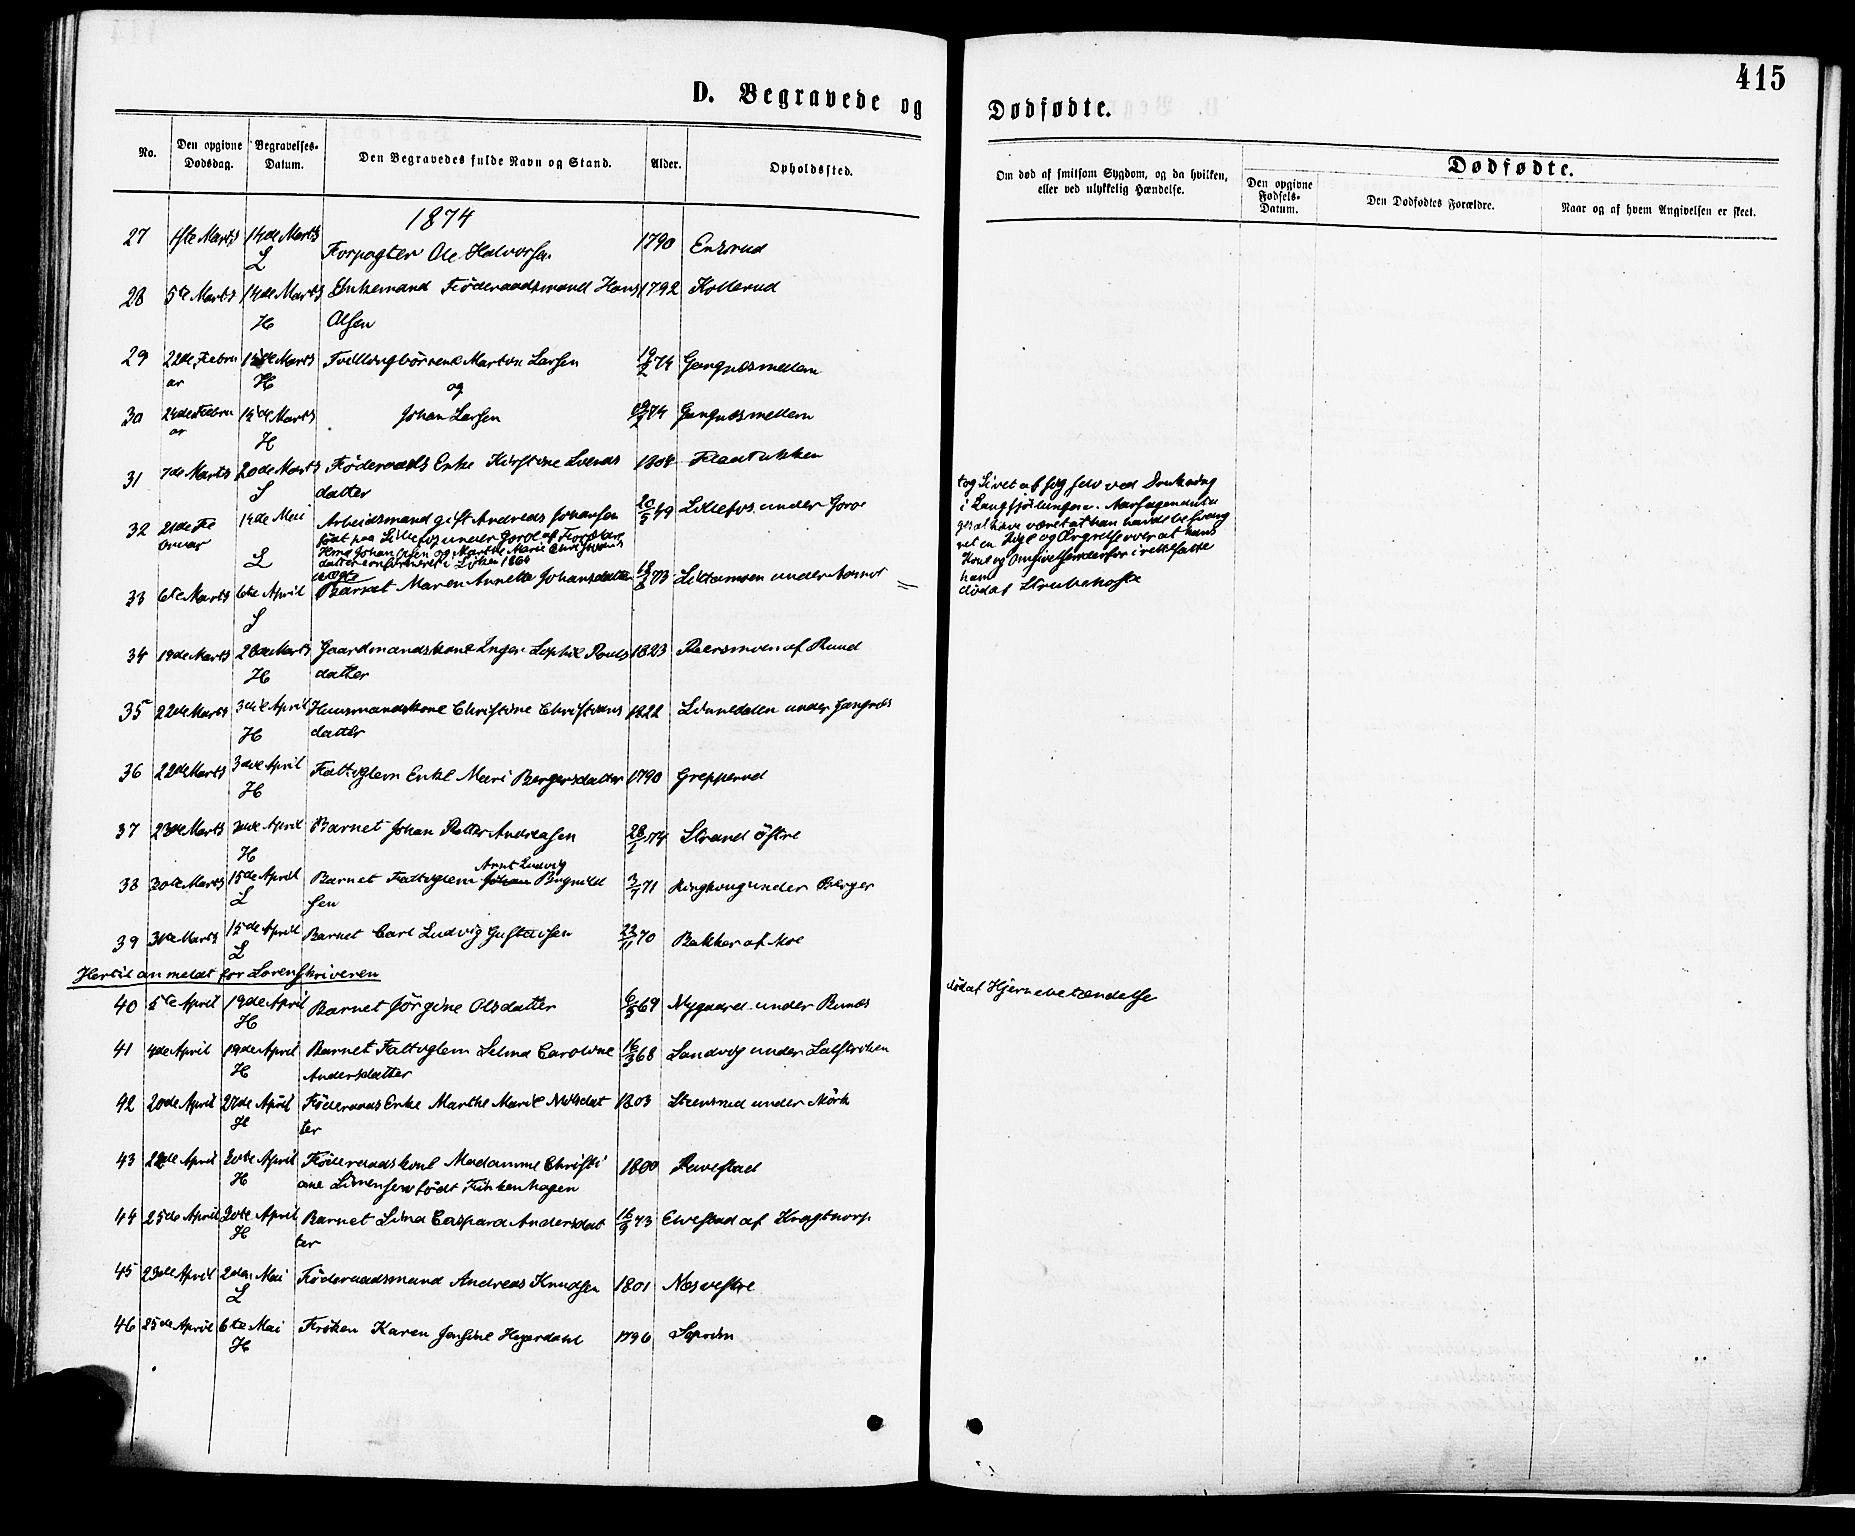 415
D. Begravede og Dødfødte.
No.
Den opgivne Dødsdag.
Begravelses-Datum.
Den Begravedes fulde Navn og Stand.
Alder.
Opholdssted.
Om død af smitsom Sygdom, og da hvilken, eller ved ulykkelig Hændelse.
Dødfødte.
Den opgivne Fødsels-Datum.
Den Dødfødtes Forældre.
Naar og af hvem Angivelsen er skeet.
1874
27 1ste Marts 14de Marts Forpagter Ole Halvorsen 1790 Ensrud
L
28 5te Marts 14de Marts Enkemand Föderaadsmand Hans 1792 Kollerud
H Olsen
29 22de Febru 14de Marts Tvillingbörnene Martin Larsen 19/2 74 Gangnæs mellem
ar H og
30 24de Febru 14de Marts Johan Larsen 19/2 74 Gangnæs mellem
ar H
31 7de Marts 20de Marts Föderaads Enke Kirstine Svends 1804
S datter
32 21de Fe 14de Mai Arbeidsmand gift Andreas Johansen 20/5 49 Lillefos under Goroe
bruar L født paa Lillefos under Goroe af Forældrene
Johan Olsen og Marthe Marie Christians
datter confirmeret i Löken 1864
tog Livet af sig selv ved
have været at han havde besvang
ret en Pige og Ærgrelse over at hans
Kone og Omgivelser derfor irettesatte
ham
33 6te Marts 6te April Barnet Maren Annette Johansdatter 18/8 73 under
S
død af Strubehoste
34 19de Marts 28de Marts Gaardmandskone Inger Sophie Pouls 1823 af Ruud
H datter
35 22de Marts 3die April Huusmandskone Christine Christians 1822 Linnedalen under Gangnæs
H datter
36 22de Marts 3die April Fattiglem Enke Mari Bergersdatter 1790 Grepperud
H
37 23de Marts 3die April Barnet Johan Petter Andreasen 28/1 74 Strand östre
H
Arnt Ludvig
38 30te Marts 15de April Barnet Fattiglem Johan 3/1 71 under Berger
L sen
39 31te Marts 15de April Barnet Carl Ludvig Gustavsen 23/11 70 Bakker af Moe
L
Hertil anmeldt for Sorenskriveren
40 5te April 19de April Barnet Jörgine Olsdatter 6/5 69 Nygaard under Bunes
H
død af Hjernebetændelse
41 4de April 19de April Barnet Fattiglem Selma Caroline 16/3 68 Sandvig under
H Andersdatter
42 20de April 27de April Föderaads Enke Marthe Marie Nilsdat 1803 Steensrud under Mörk
H ter
43 22de April 30te April Föderaadskone Madamme Christi 1800 Ravestad
H ane Simensen født Finkenhagen
44 25de April 30te April Barnet Lina Caspara Andersdat 16/9 73 Elvestad af Kragtorp
H ter
45 23de April 2den Mai Föderaadsmand Andreas Knudsen 1801 Næs vestre
L
46 25de April 6te Mai Fröken Karen Jensine Hejerdahl 1796
H